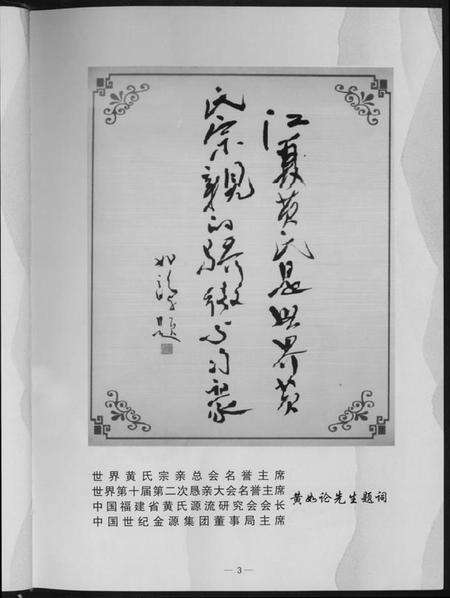 江夏黄氏是世界黄
氏宗親的骄傲与自豪
如論题
世界黄氏宗亲总会名誉主席
世界第十届第二次恳亲大会名誉主席
中国福建省黄氏源流研究会会长
中国世纪金源集团董事局主席
黄如论先生题词
— 3 —